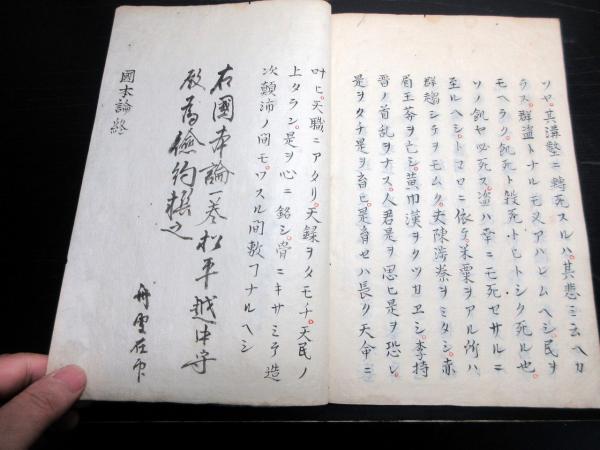 ツヤ。其溝壑ニ轉死スルハ。其悲ミ云ヘカ
ラス。群盗トナルモ又アハレムヘシ。民ヲ
モヘラク。飢死ト殺死トヒトシク死ル也。
ソノ飢ヤ必死ス。盗ハ幸ニモ死セサルニ
至ルヘシ。トマロニ依テ。米粟ヲアル所ハ
群趨シテヲモムク。夫陳渉秦ヲミタシ。赤
眉王莽ヲ亡シ。黄巾漢ヲクツカヱシ。李特
晋ノ首乱ヲナス。人君是ヲ思ヒ是ヲ恐レ。
是ヲタテ是ヲ畜ヒ。是育セハ長ク天命ニ
叶ヒ。天職ニアタリ。天録ヲタモチ。天民ノ
上タラン。是ヲ心ニ銘シ。骨ニキサミテ造
次顛沛ノ間モ。ワスル間敷フナルヘシ
右國本論一巻松平越中守
殿為儉約撰之
舟雪在印
國本論終